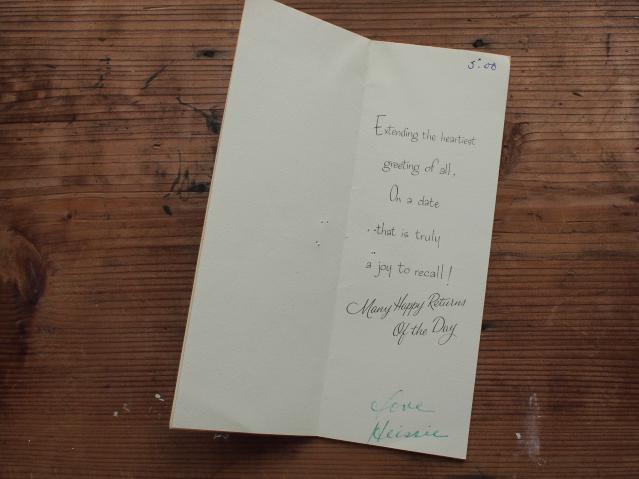 5.00
Extending the heartiest
greeting of all,
On a date
..that is truly
a joy to recall!
Many Happy Returns
Of the Day
Love